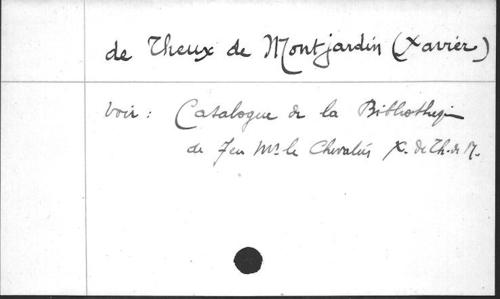 de Theux de Montjardin (Xavier)
Voir : Catalogue de la Biblioth
de feu Mr le Chevalier X. de Th. de M.